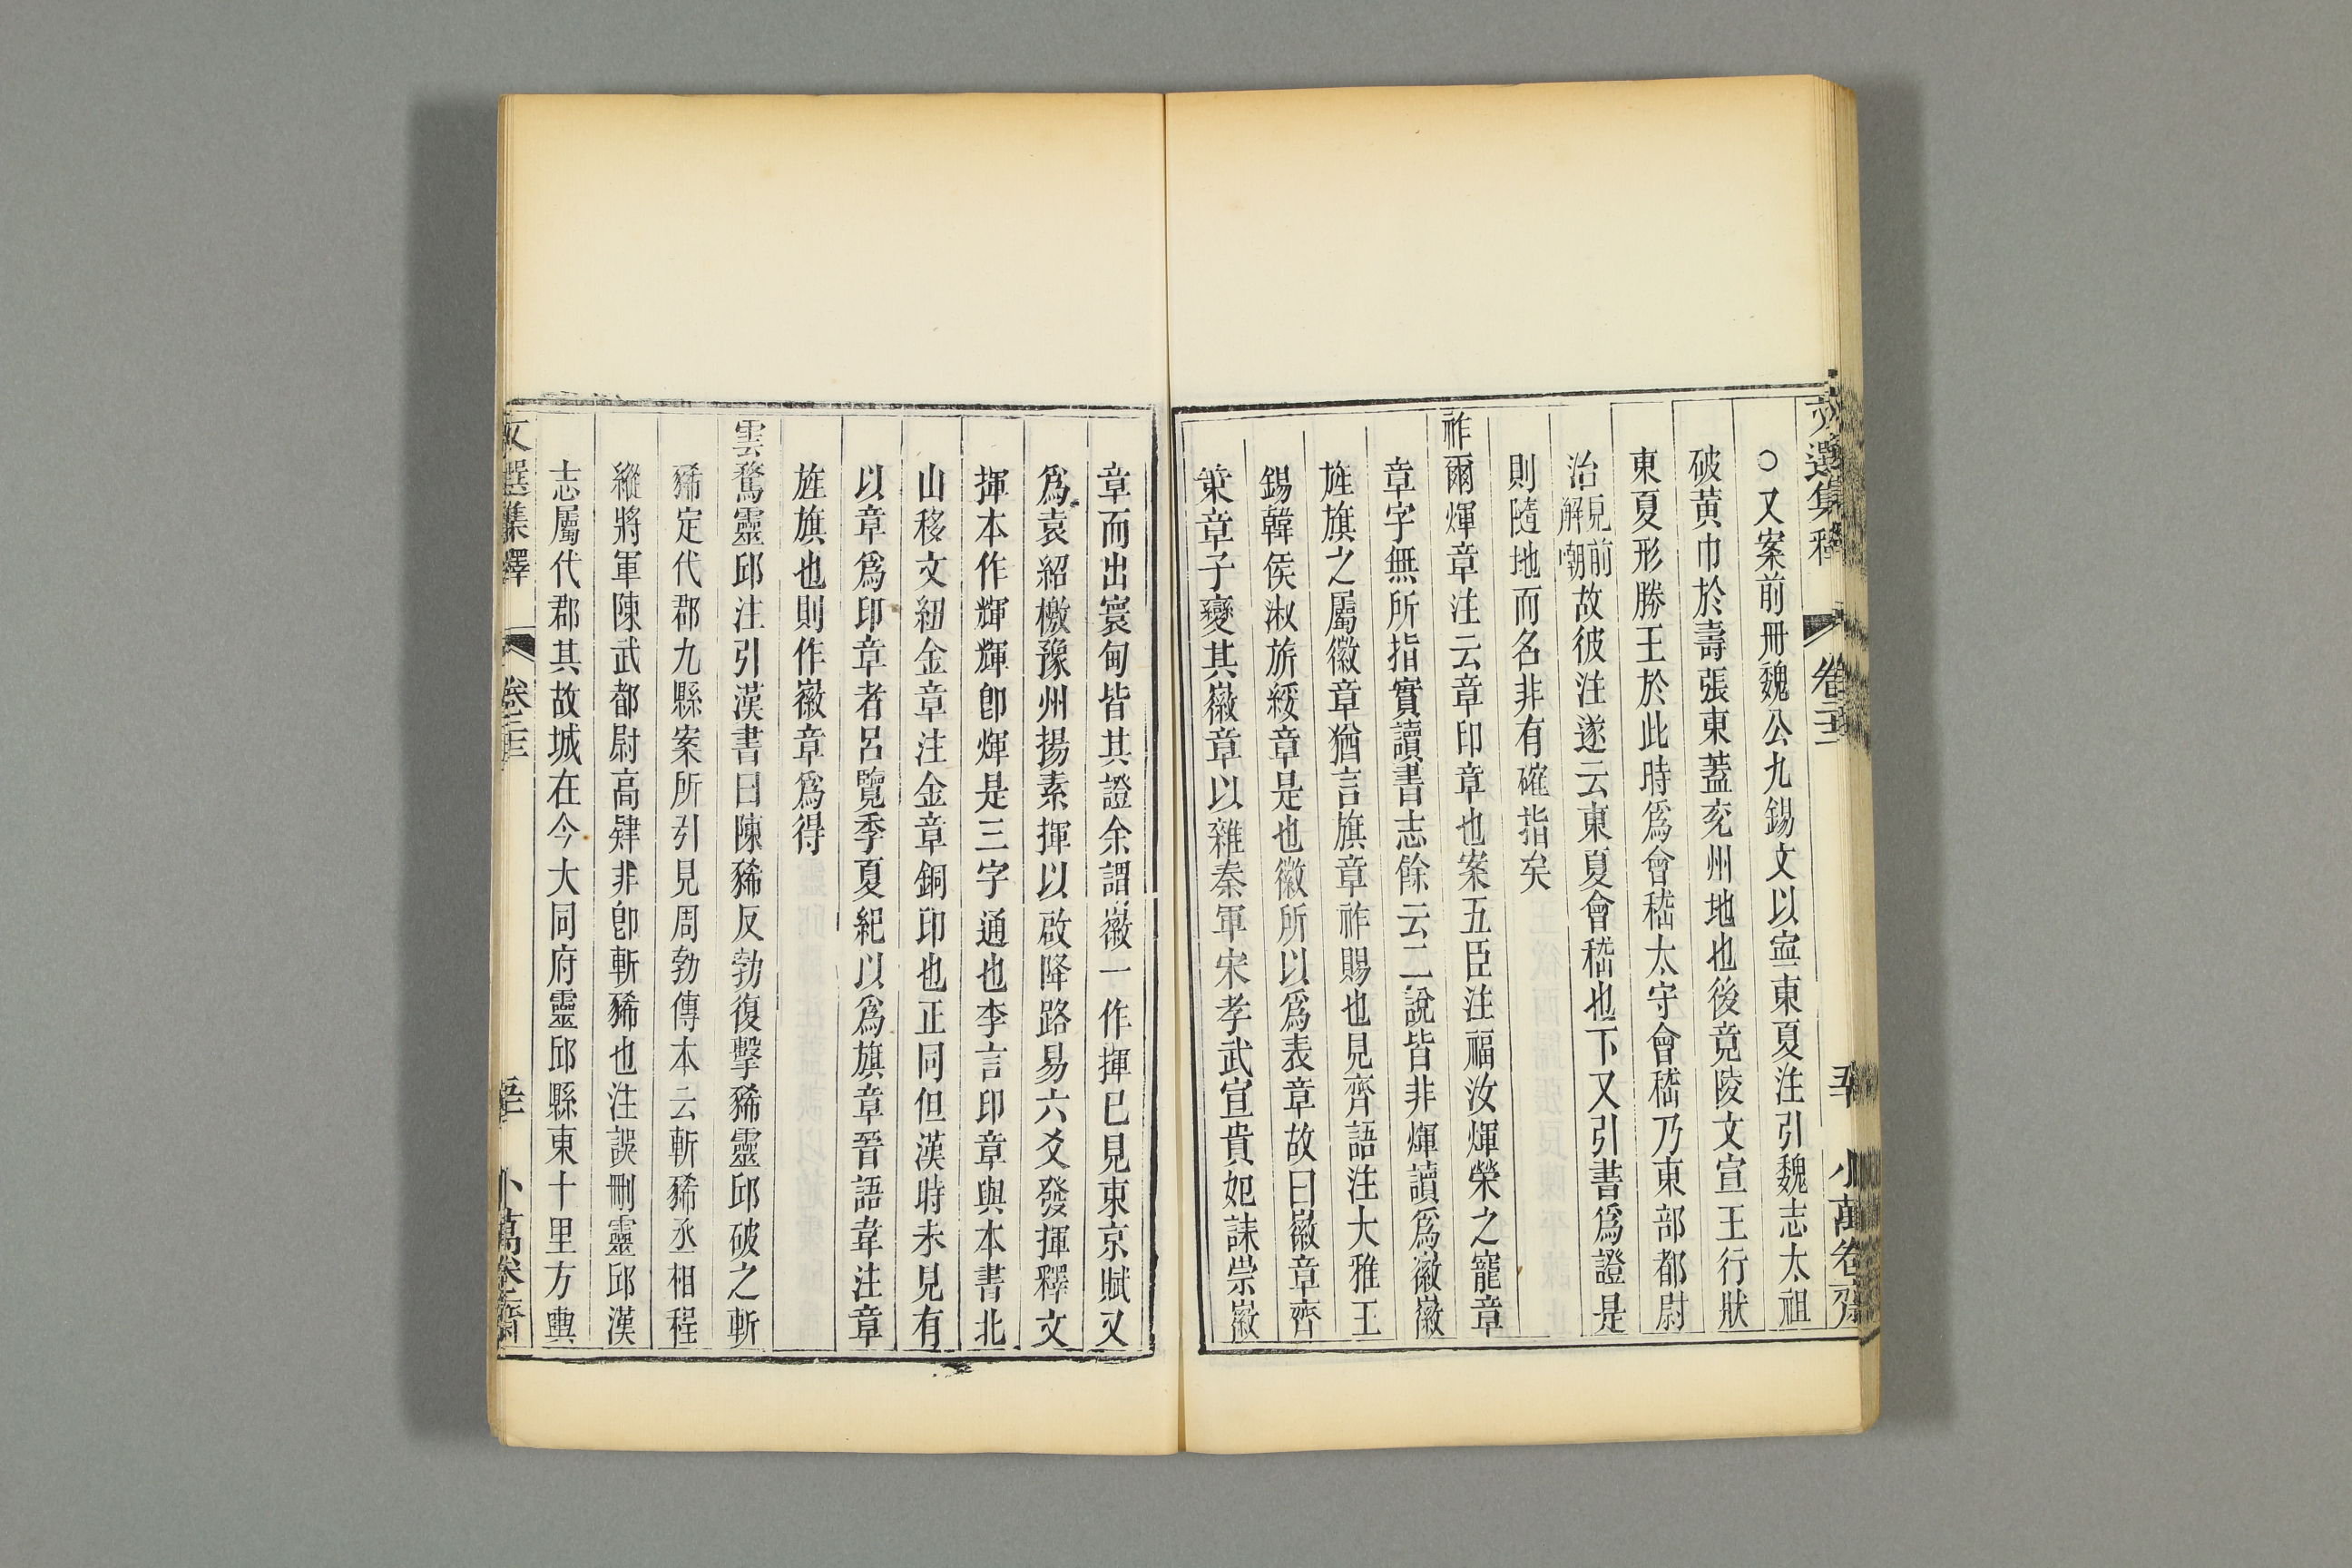 ○又案前冊魏公九錫文以寍東夏注引魏志太祖
破黃巾於壽張東蓋兖州地也後竟陵文宣王行狀
東夏形勝王於此時爲會稽太守會稽乃東部都尉
治見前解嘲故彼注遂云東夏會稽也下又引書爲證是
則隨地而名非有確指矣
祚爾煇章注云章印章也案五臣注福汝煇榮之寵章
章字無所指實讀書志餘云二說皆非煇讀爲徽徽
旌旗之屬徽章猶言旗章祚賜也見齊語注大雅王
錫韓侯淑旂綏章是也徽所以爲表章故曰徽章齊
策章子變其徽章以雜秦軍宋孝武宣貴妃誄崇徽
章而出寰甸皆其證余謂徽一作揮已見東京賦又
爲袁紹檄豫州揚素揮以啟降路易六爻發揮釋文
揮本作輝輝卽煇是三字通也李言印章與本書北
山移文紐金章注金章銅印也正同但漢時未見有
以章爲印章者呂覽季夏紀以爲旗章晉語韋注章
旌旗也則作徽章爲得
雲騖靈邱注引漢書曰陳豨反勃復擊豨靈邱破之斬
豨定代郡九縣案所引見周勃傳本云斬豨丞相程
縱將軍陳武都尉高肄非卽斬豨也注誤刪靈邱漢
志屬代郡其故城在今大同府靈邱縣東十里方輿
文選集釋
卷二十二
小萬卷齋